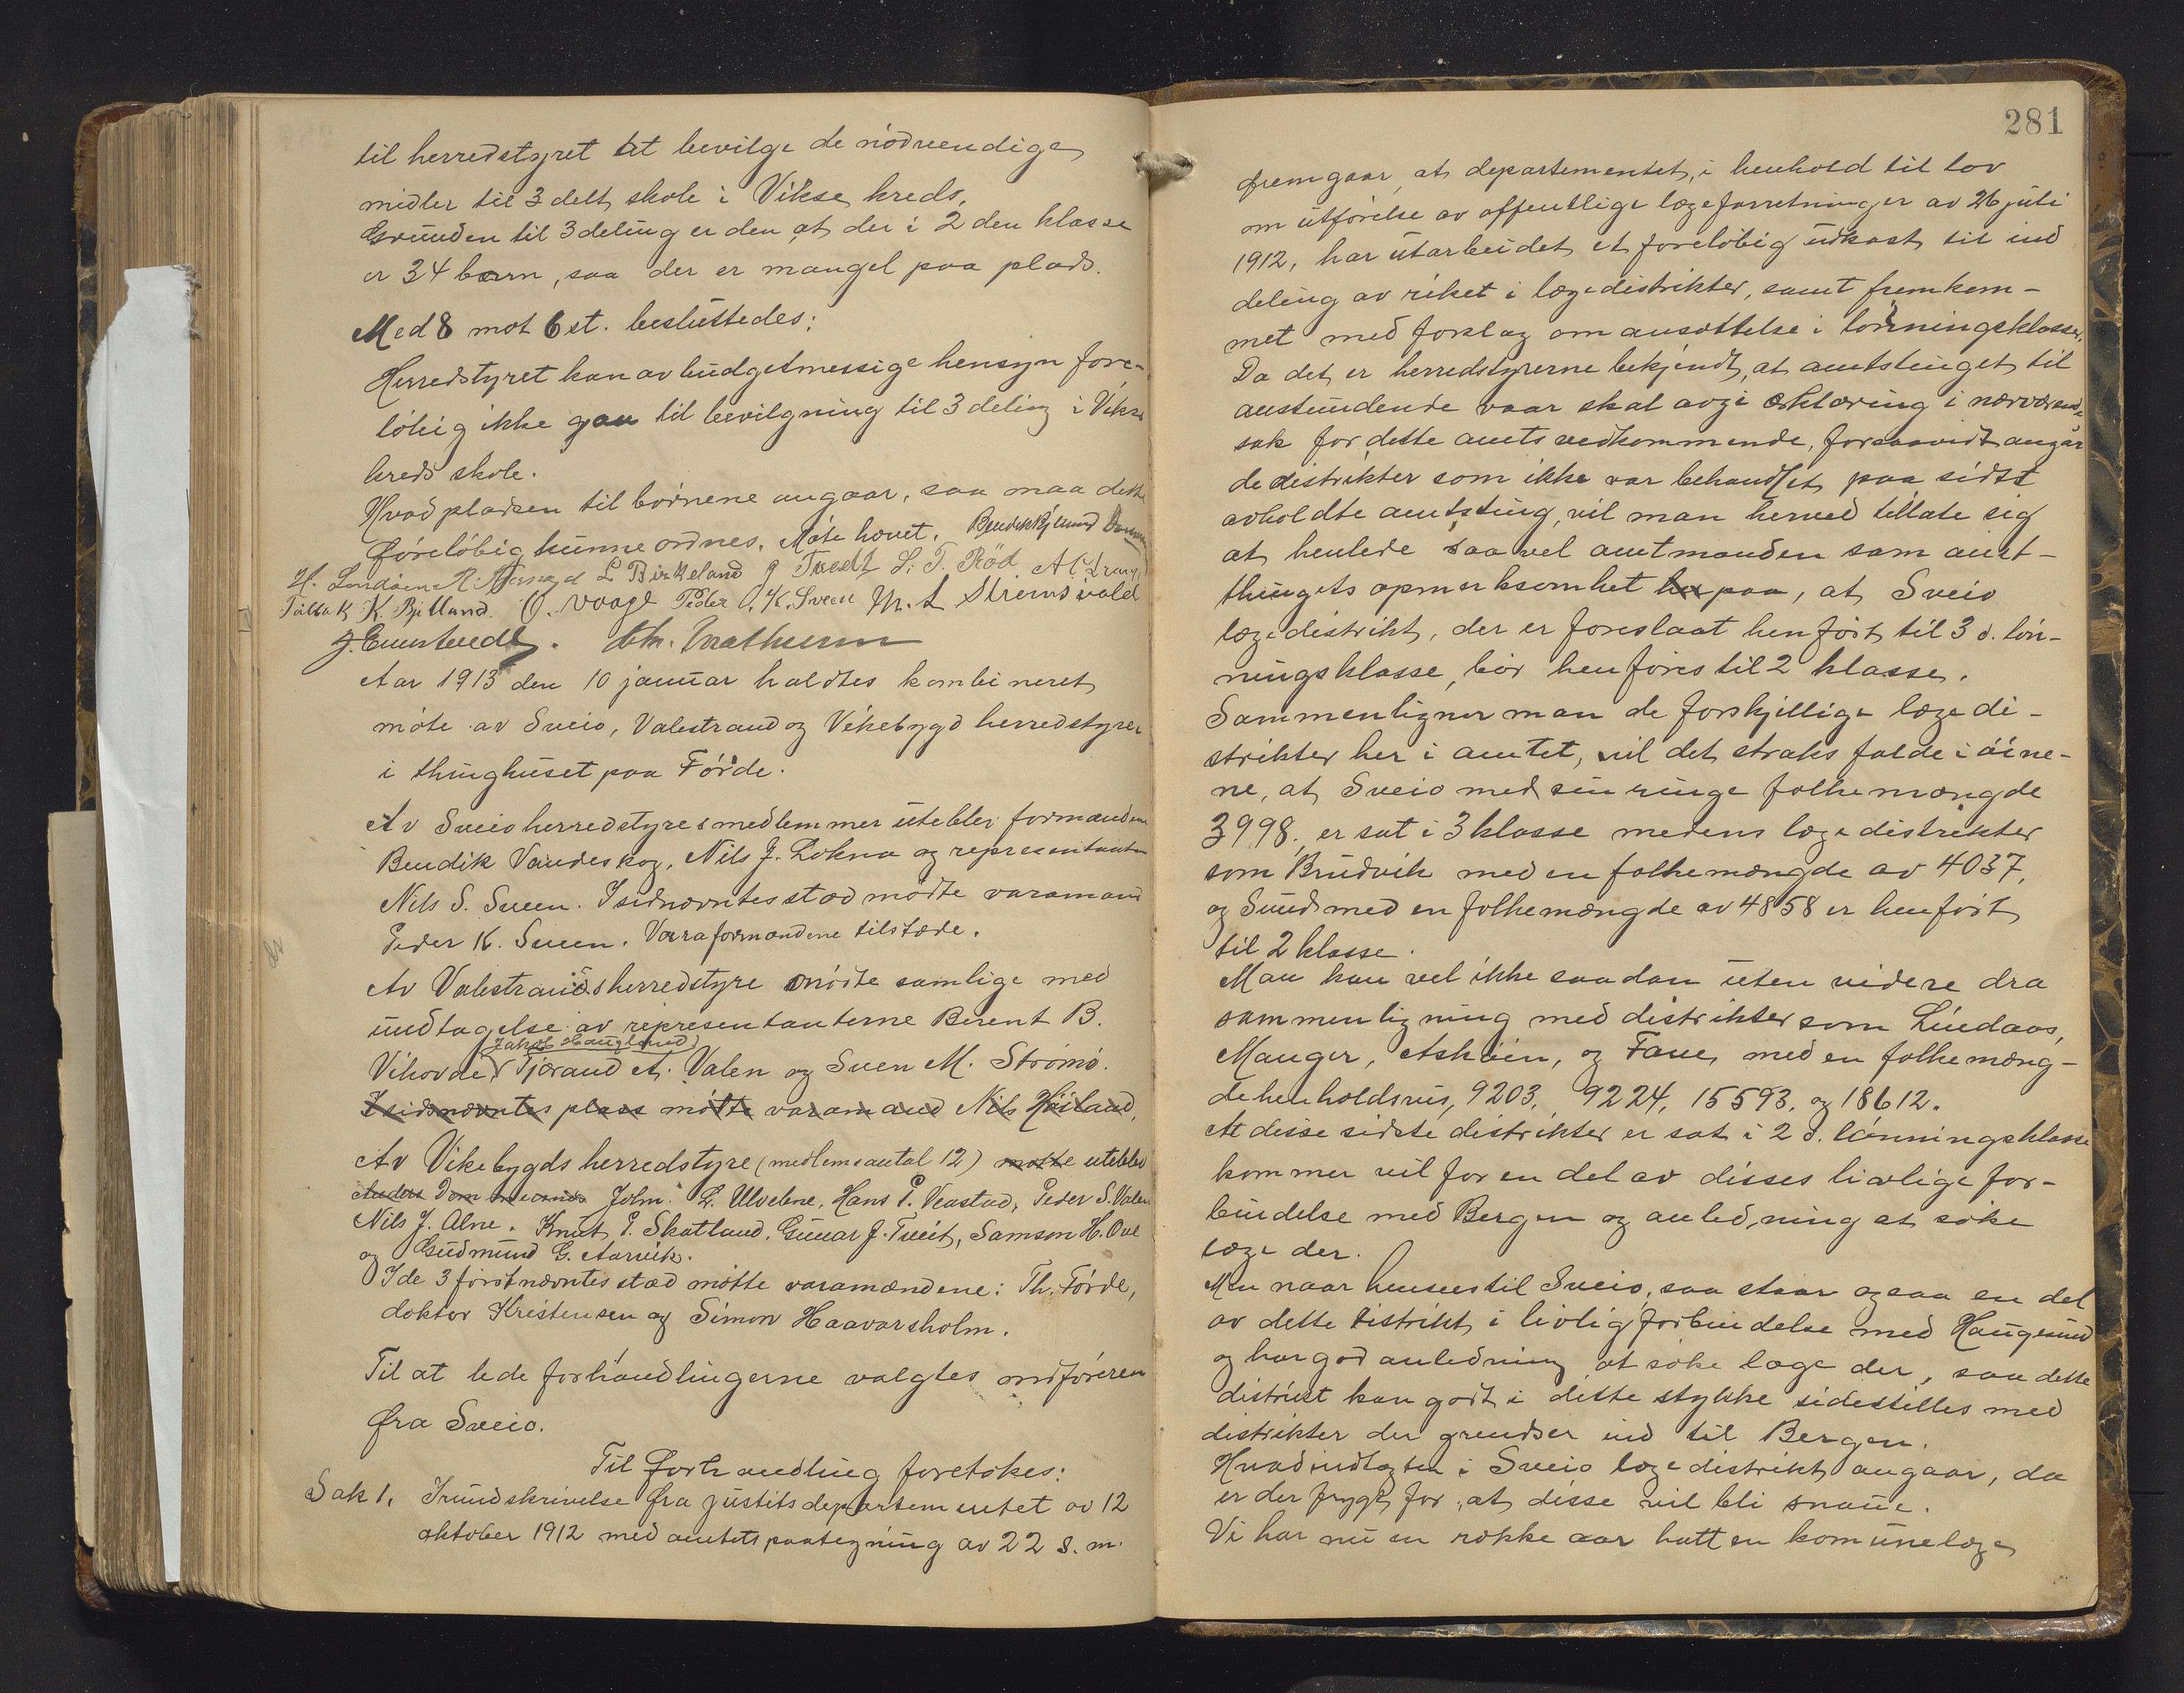 til herredstyret at bevilge de nödvendige
midler til 3 delt skole i Vikse kreds.
Grunden til 3 deling er den at der i 2 den klasse
er 34 barn, saa der er mangel paa plads.
Med 8 mot 6 st. besluttedes:
Herredstyret kan av budgetmessige hensyn fore-
löbig ikke gaa til bevilgning til 3 deling i Vikse
kreds skole.
Hvad pladsen til börnene angaar, saa maa dette
foreløbig kunne ordnes. Møte hævet.
H. Lindöen L Birkeland J Tveit L. T. Röd
K. Bjelland. O. Vaage Peder K. Sveen M. L Strömsvold
Aar 1913 den 10 januar holdtes kombineret
möte av Sveio, Valestrand og Vikebygd herredstyrer
i thinghuset paa Förde.
Av Sveio herredstyres medlemmer uteblev formændene
Bendik Vandeskog, Nils J. Lokna og representanten
Nils S. Sveen. I sidnævntes sted mödte varamand
Peder K. Sveen. Varaformændene tilstæde.
Av Valestrands herredstyre mödte samlige med
undtagelse av representanterne Berent B.
Jakob Haugland
Vihovde, Tjerand A. Valen og Sven M. Strömö.
I sidsnævntes plass mötte varamand Nils Höiland,
Av Vikebygds herredstyre (medlemsantal 12) mötte uteblev
John L. Ulvebne, Hans P. Veastad, Peder S. Valen
Nils J. Alne. Knut P. Skatland, Gunar J. Tveit, Samson H.
og Gudmund G. Aarvik.
I de 3 förstnævntes sted mötte varamændene: Th. Förde,
doktor Kristensen og Simon Haavarsholm.
Til at lede forhandlingerne valgtes ordföreren
fra Sveio.
Til forhandling foretokes:
Sak 1. I rundskrivelse fra justitsdepartementet av 12
oktober 1912 med amtets paategning av 22 s. m.
281
fremgaar, at departementet, i henhold til lov
om utförelse av offentlige lægeforretninger av 26 juli
1912, har utarbeidet et foreløbig utkast til ind
deling av riket i lægedistrikter, samt fremkom-
met med forslag om ansættelse i lönningsklasser.
Da det er herredstyrerne bekjendt, at amtstinget til
anstundende vaar skal avgi erklæring i nærværende
sak for dette amts vedkommende, forsaavidt angår
de distrikter som ikke var behandlet paa sidst
avholdte amtsting, vil man herved tillate sig
at henlede saavel amtmanden som amt-
thingets opmerksomhet her paa, at Sveio
lægedistrikt, der er foreslaat henfört til 3 d. lön-
ningsklasse, bör henföres til 2 klasse.
Sammenligner man de forskjellige lægedi-
strikter her i amtet, vil det straks falde i öine-
ne, at Sveio med sin ringe folkemængde
3998, er sat i 3 klasse medens lægedistrikter
som Brudvik med en folkemængde av 4037,
og Sund med en folkemængde av 4858 er henfört
til 2 klasse.
Man kan vel ikke saadan uten videre dra
sammenligning med distrikter som Lindaas,
Manger, Asköen, og Fane, med en folkemæng-
de henholdsvis, 9203, 9224, 15593, og 18612.
At disse sidste distrikter er sat i 2 d. lönningsklasse
kommer vel for en del av disses livlige for-
bindelse med Bergen og anledning at söke
læge der.
Men naar hensees til Sveio, saa staar ogsaa en del
av dette distrikt i livlig forbindelse med Haugesund
og har god anledning at söke læge der, saa dette
distrikt kan godt i dette stykke sidestilles med
distrikter der grendser ind til Bergen.
Hvad indtægten i Sveio lægedistrikt angaar, da
er der frygt for, at disse vil bli snaue.
Vi har nu en række aar hatt en komunelæge